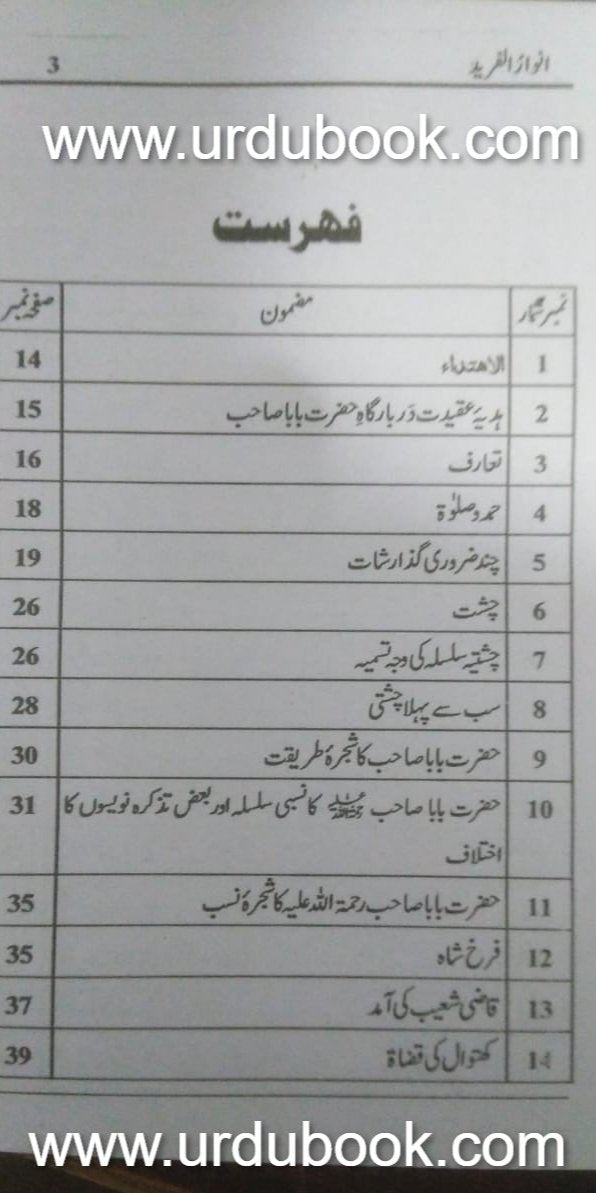 انوار الفرید 3
www.urdubook.com
فہرست
نمبر شمار مضمون صفحہ نمبر
1 الاھتداء 14
2 ہدیۂ عقیدت دَر بارگاہِ حضرت بابا صاحب 15
3 تعارف 16
4 حمد و صلوٰۃ 18
5 چند ضروری گذارشات 19
6 چشت 26
7 چشتیہ سلسلہ کی وجہ تسمیہ 26
8 سب سے پہلا چشتی 28
9 حضرت بابا صاحب کا شجرۂ طریقت 30
10 حضرت بابا صاحب رحمۃ اللہ علیہ کا نسبی سلسلہ اور بعض تذکرہ نویسوں کا 31
اختلاف
11 حضرت بابا صاحب رحمۃ اللہ علیہ کا شجرۂ نسب 35
12 فرخ شاہ 35
13 قاضی شعیب کی آمد 37
14 کھتوال کی قضاۃ 39
www.urdubook.com